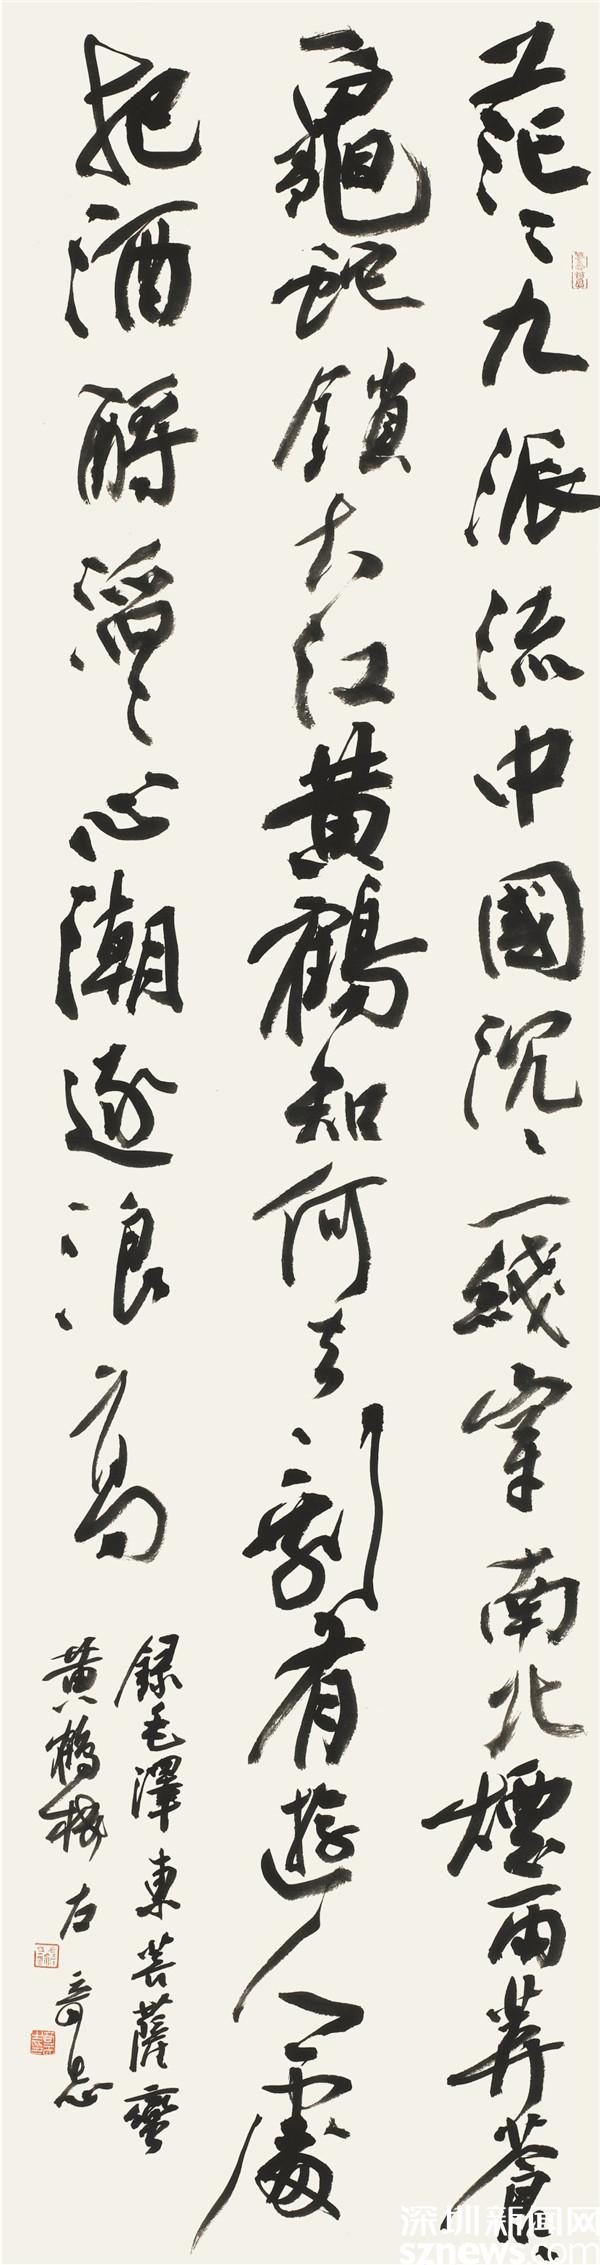 茫〻九派流中國沉〻一綫穿南北煙雨莽蒼〻
龜蛇鎖大江黄鶴知何去剩有遊人處
把酒酹滔〻心潮逐浪高
録毛澤東菩薩蠻
黄鶴樓 左
深圳新闻网
sznews.com